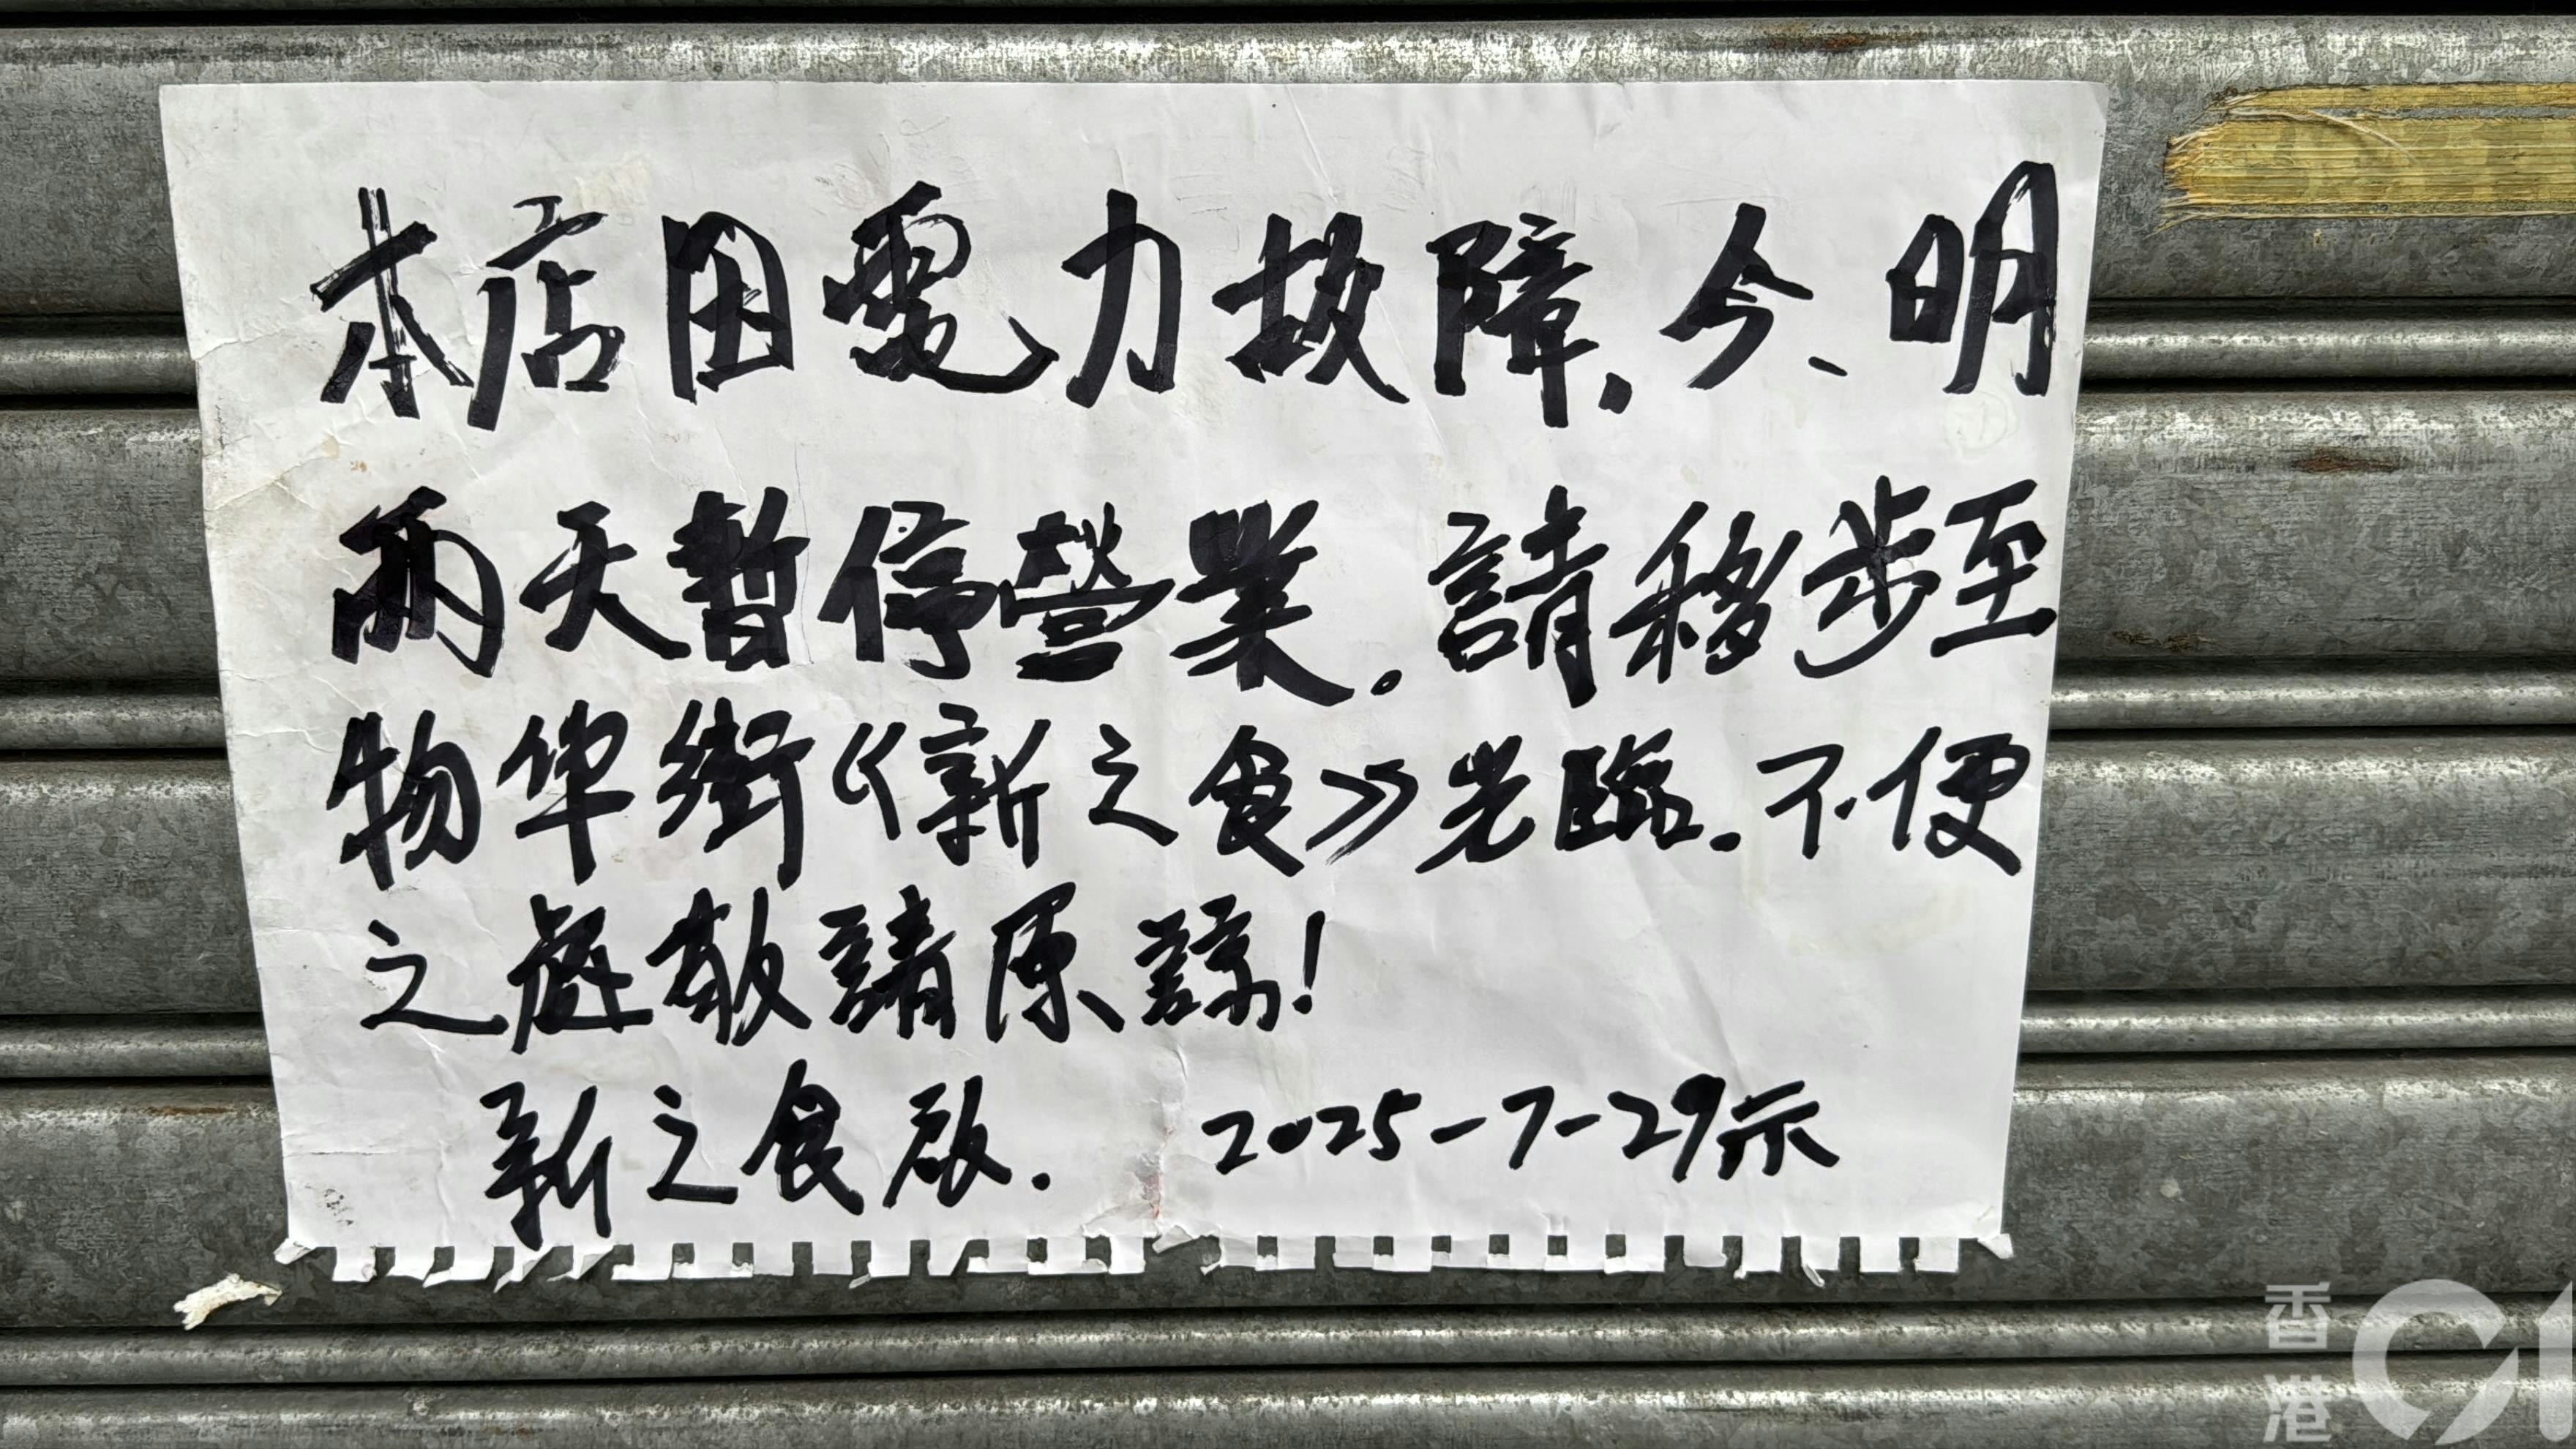 本店因電力故障，今、明
兩天暫停營業。請移步至
物华街《新之食》光臨。不便
之處敬請原諒！
新之食啟． 2025-7-29示
香港01